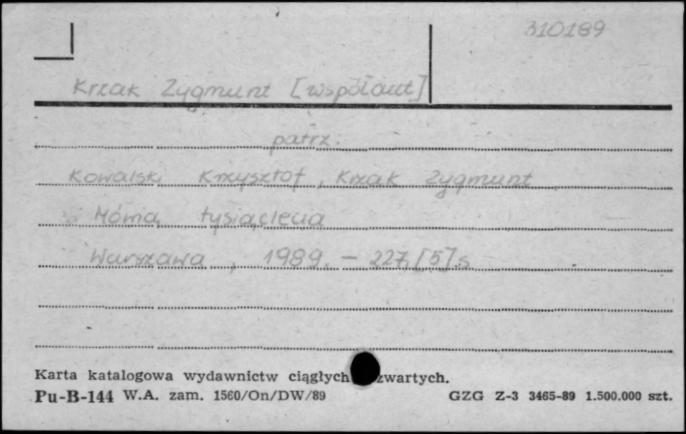 310189
Krzak Zygmunt [współaut]
patrz:
Kowalski Krzysztof, Krzak Zygmunt
tysiąclecia
Warszawa, 1989. - 227,[5] s
Karta katalogowa wydawnictw ciągłych zwartych.
Pu-B-144 W.A. zam. 1560/On/DW/89 GZG Z-3 3465-89 1.500.000 szt.